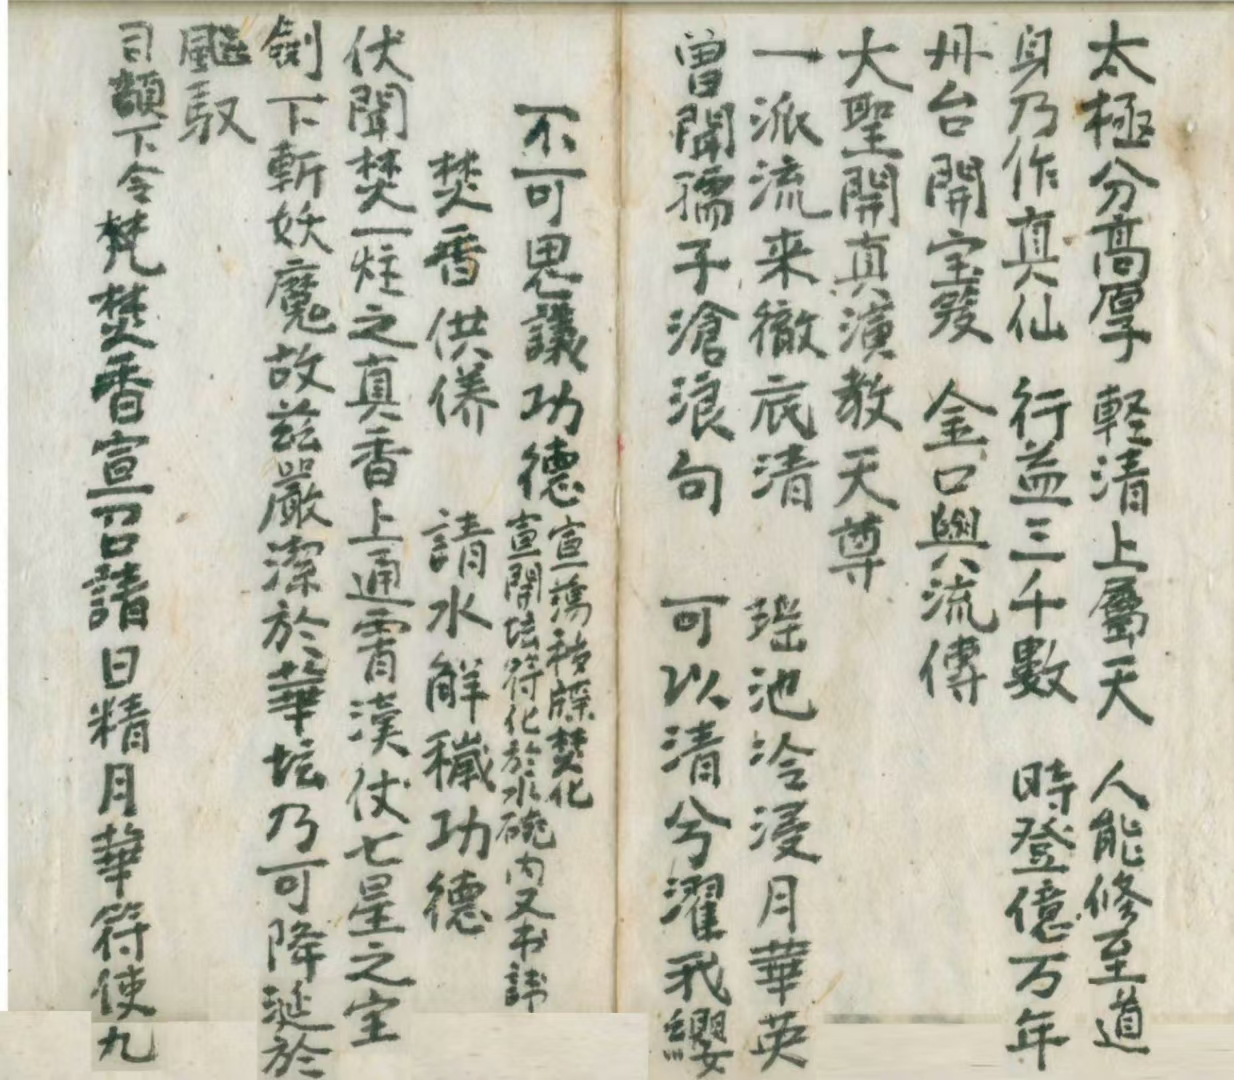 太極分高厚 輕清上屬天 人能修至道
身乃作真仙 行益三千數 時登億万年
丹台開宝笈 金口與流傳
大聖開真演教天尊
一派流来徹底清 瑶池冷浸月華英
曾聞孺子滄浪句 可以清兮濯我纓
不可思議功德
宣蕩穢牒焚化
宣開坛符化於水碗内又书諱
焚香供养 請水解穢功德
伏聞焚一炷之真香上通霄漢仗七星之宝
劍下斬妖魔故兹嚴潔於華坛乃可降延於
飈馭
司額下令焚香宣召請日精月華符使九